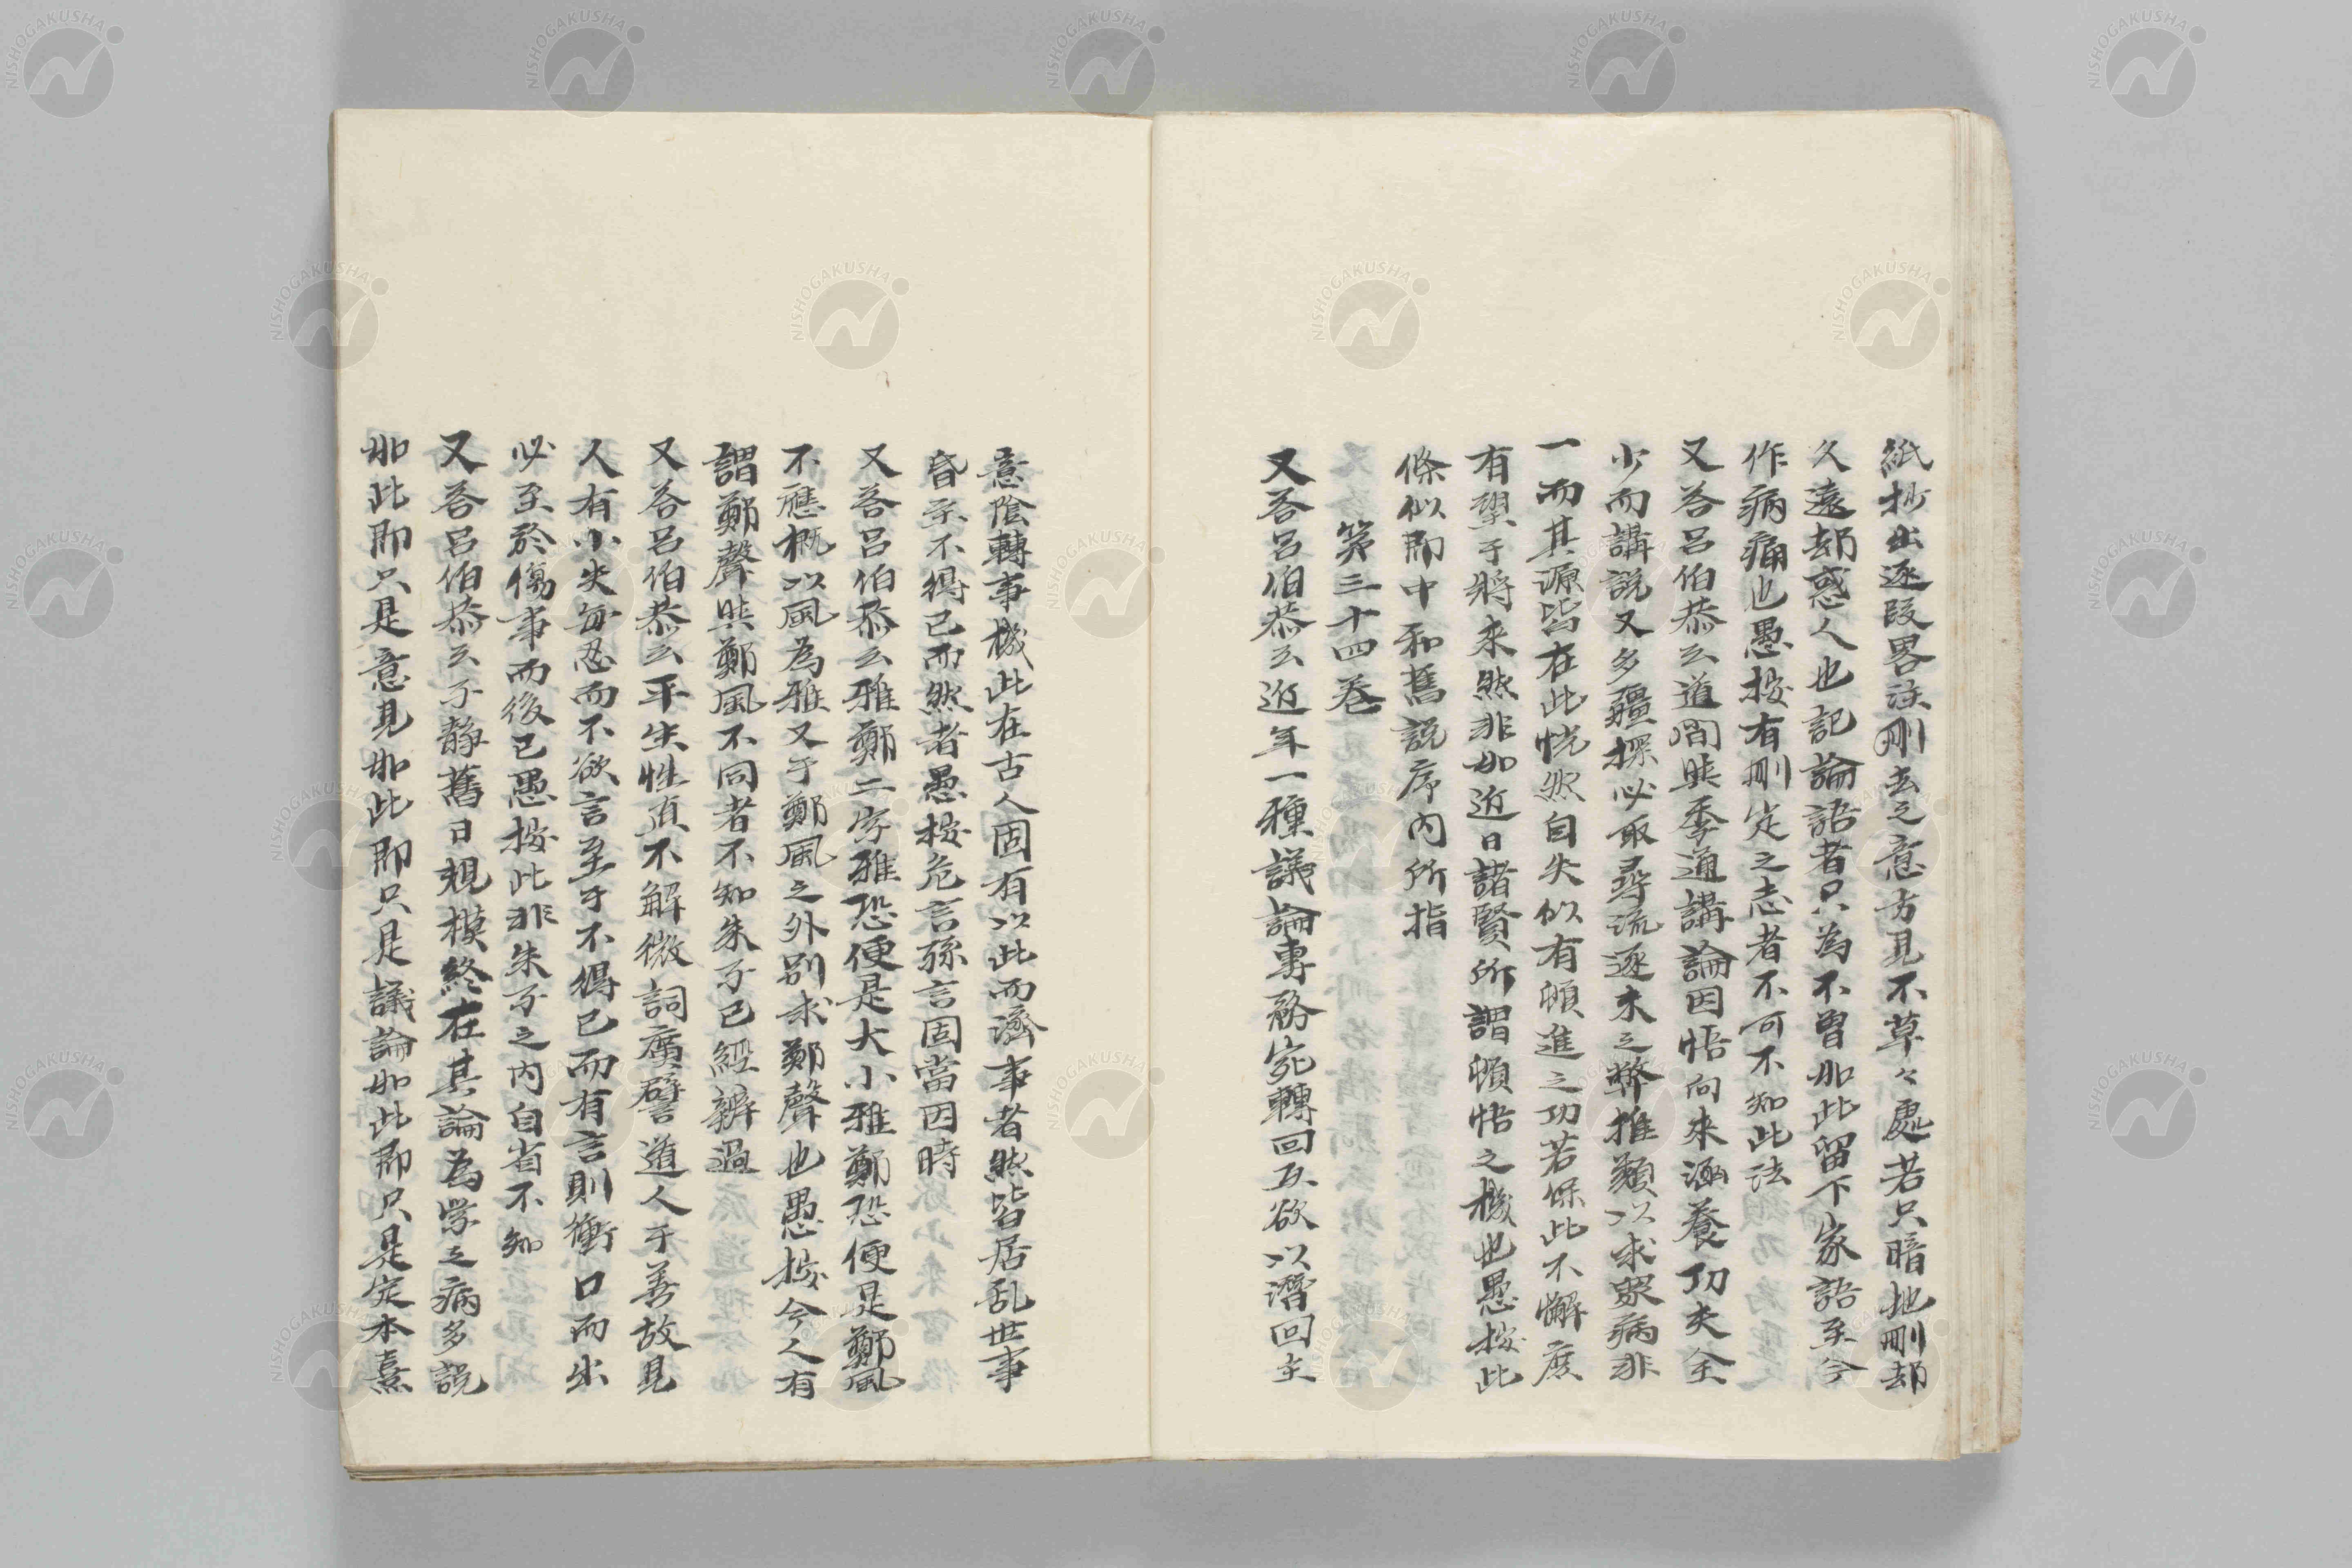 紙抄出逐段畧注刪去之意方見不草々處若只暗地刪却
久遠却惑人也記論語者只為不曽如此留下家語至今
作病痛也愚按有刪定之志者不可不知此法
又答呂伯恭云道間與季通講論因悟向來涵養功夫全
少而講説又多彊探必取尋流逐末之弊推類以求眾病非
一而其源皆在此恍然自失似有頓進之功若保此不懈庶
有望于將來然非如近日諸賢所謂頓悟之機也愚按此
條似即中和舊説序内所指
第三十四卷
又答呂伯恭云近年一種議論專務宛轉回互欲以潛回主
意陰轉事機此在古人固有以此而濟事者然皆居乱世事
昏主不得已而然者愚按危言孫言固當因時
又答呂伯恭云雅鄭二字雅恐便是大小雅鄭恐便是鄭風
不應概以風為雅又于鄭風之外別求鄭聲也愚按今人有
謂鄭聲與鄭風不同者不知朱子已經辨過
又答呂伯恭云平生性直不解微詞廣譬道人于善故見
人有小失每忍而不欲言至于不得已而有言則衝口而出
必至於傷事而後已愚按此非朱子之内自省不知
又答呂伯恭云子静舊日規模終在其論為学之病多説
如此即只是意見如此即只是議論如此即只是定本熹
NISHOGAKUSHA